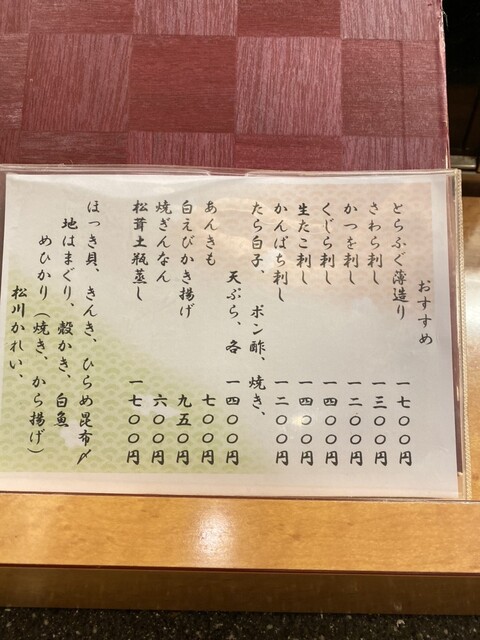 おすすめ
とらふぐ薄造り 一七〇〇円
さわら刺し 一三〇〇円
かつを刺し 一二〇〇円
くじら刺し 一四〇〇円
生たこ刺し 一四〇〇円
かんぱち刺し 一二〇〇円
たら白子、ポン酢、焼き、
天ぷら、各 一四〇〇円
あんきも 七〇〇円
白えびかき揚げ 九五〇円
焼ぎんなん 六〇〇円
松茸土瓶蒸し 一七〇〇円
ほっき貝、きんき、ひらめ昆布〆
地はまぐり、殻かき、白魚
めひかり(焼き、から揚げ)
松川かれい、